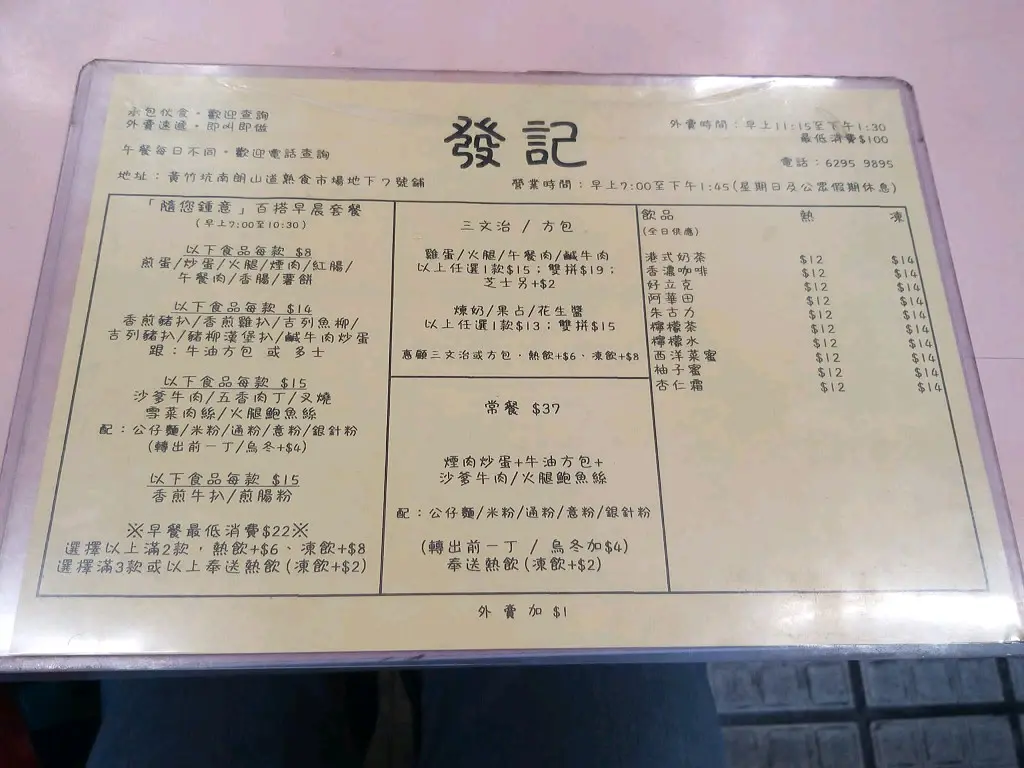 承包伙食·歡迎查詢
外賣速遞·即叫即做
午餐每日不同·歡迎電話查詢
地址：黃竹坑南朗山道熟食市場地下7號鋪
發記
外賣時間：早上11:15至下午1:30
最低消費$100
電話：6295 9895
營業時間：早上7:00至下午1:45(星期日及公眾假期休息)
「隨您鍾意」百搭早晨套餐
(早上7:00至10:30)
以下食品每款 $8
煎蛋/炒蛋/火腿/煙肉/紅腸/
午餐肉/香腸/薯餅
以下食品每款 $14
香煎豬扒/香煎雞扒/吉列魚柳/
吉列豬扒/豬柳漢堡扒/鹹牛肉炒蛋
跟：牛油方包 或 多士
以下食品每款 $15
沙爹牛肉/五香肉丁/叉燒
雪菜肉絲/火腿鮑魚絲
配：公仔麵/米粉/通粉/意粉/銀針粉
(轉出前一丁/烏冬+$4)
以下食品每款 $15
香煎牛扒/煎腸粉
※早餐最低消費$22※
選擇以上滿2款，熱飲+$6、凍飲+$8
選擇滿3款或以上奉送熱飲(凍飲+$2)
三文治 / 方包
雞蛋/火腿/午餐肉/鹹牛肉
以上任選1款$15；雙拼$19；
芝士另+$2
煉奶/果占/花生醬
以上任選1款$13；雙拼$15
惠顧三文治或方包，熱飲+$6、凍飲+$8
常餐 $37
煙肉炒蛋+牛油方包+
沙爹牛肉/火腿鮑魚絲
配：公仔麵/米粉/通粉/意粉/銀針粉
(轉出前一丁 / 烏冬加$4)
奉送熱飲(凍飲+$2)
飲品 熱 凍
(全日供應)
港式奶茶 $12 $14
香濃咖啡 $12 $14
好立克 $12 $14
阿華田 $12 $14
朱古力 $12 $14
檸檬茶 $12 $14
檸檬水 $12 $14
西洋菜蜜 $12 $14
柚子蜜 $12 $14
杏仁霜 $12 $14
外賣加$1